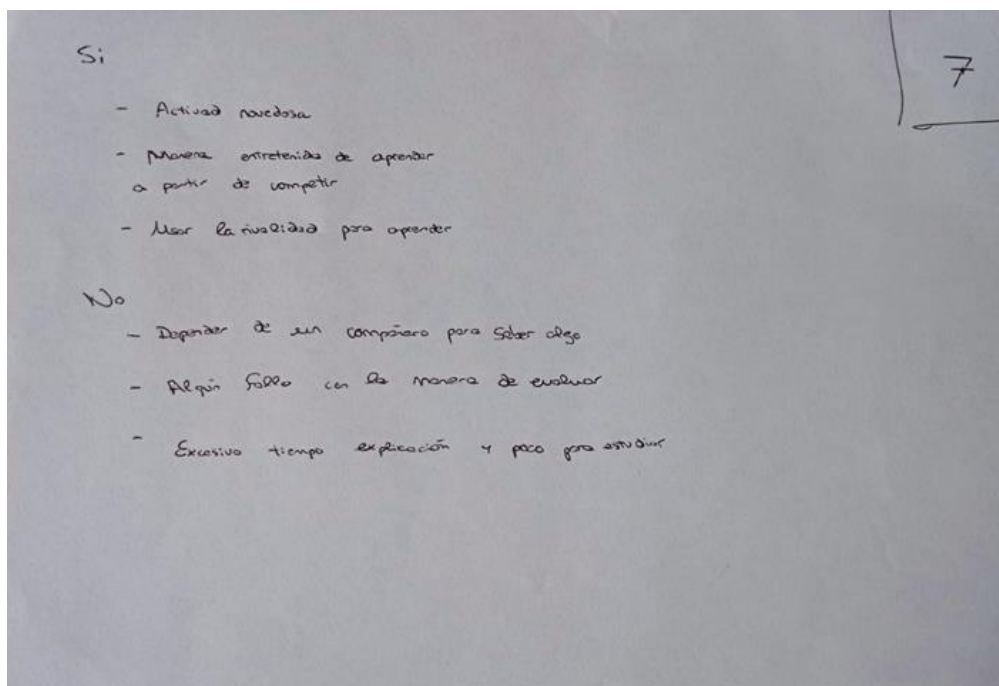 Si
7
- Activad novedosa
- Manera entretenida de aprender
a partir de competir
- Usar la rivalidad para aprender
No
- Depender de un compañero para saber algo
- Algún fallo con la manera de evaluar
- Excesivo tiempo explicación y poco para estudiar